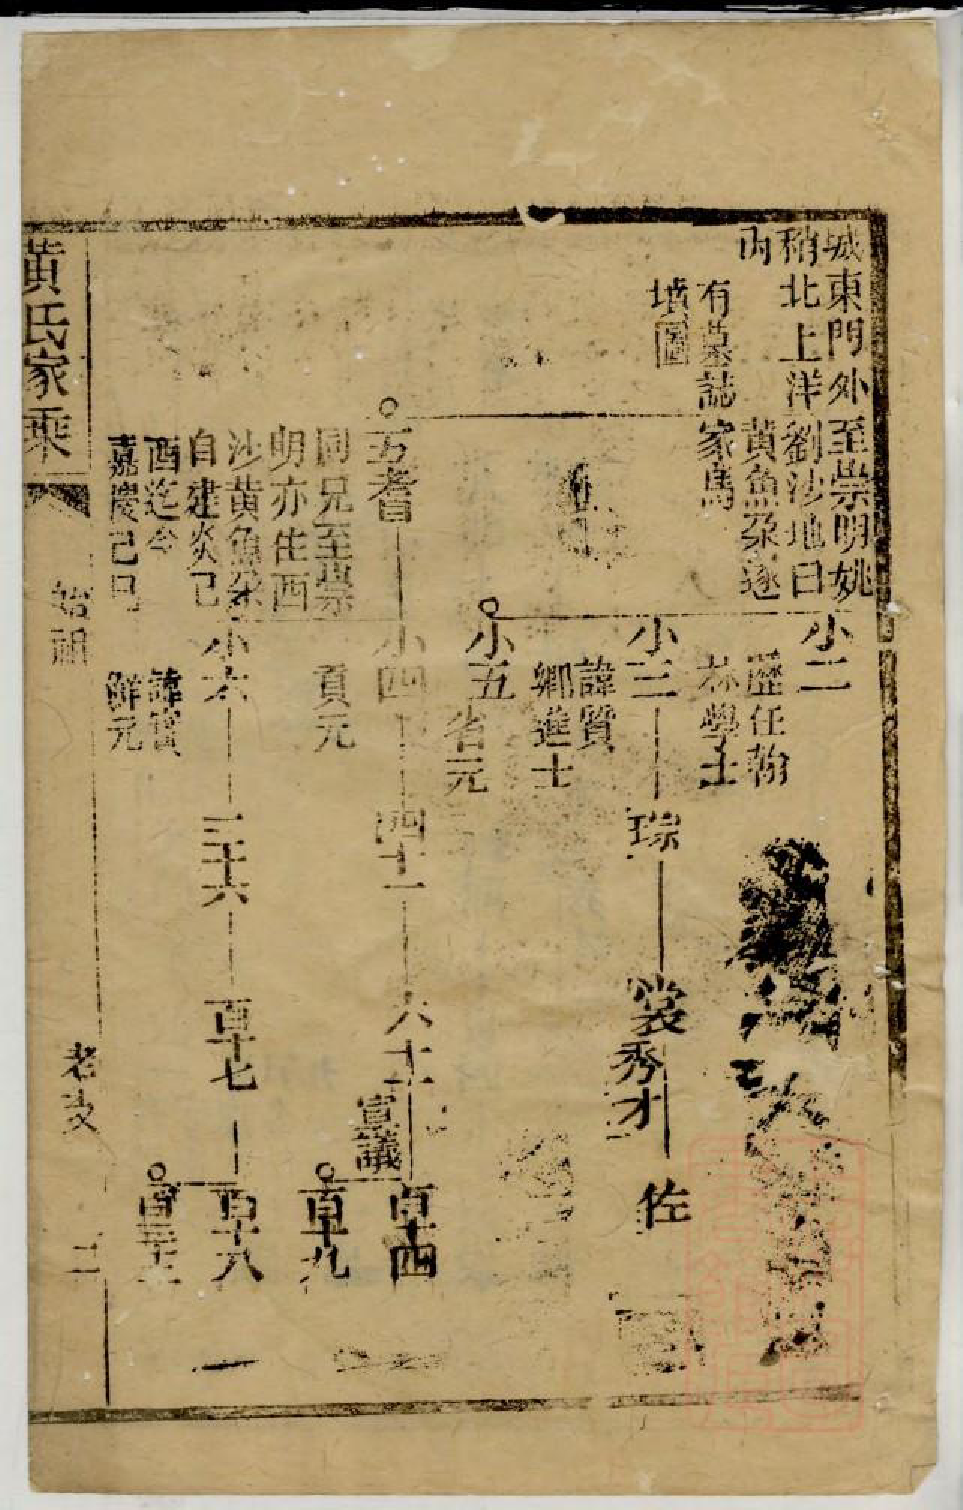 城東門外至崇明姚
稍北上洋劉沙地曰
內
黃魚垛遂
有墓誌家焉
墳圖
小二
歷任翰
林學士
小三
琮
裳
秀才
佐
諱質
鄉進士
小五
省元
五耆
小四
四十一
六十一
宣議
百十四
百十九
同兄至崇
明亦住西
沙黃魚垛
自建炎己
酉迄今
嘉慶己巳
貢元
小六
三十六
百十七
百十八
諱賓
解元
黃氏家乘
始祖
老支
二